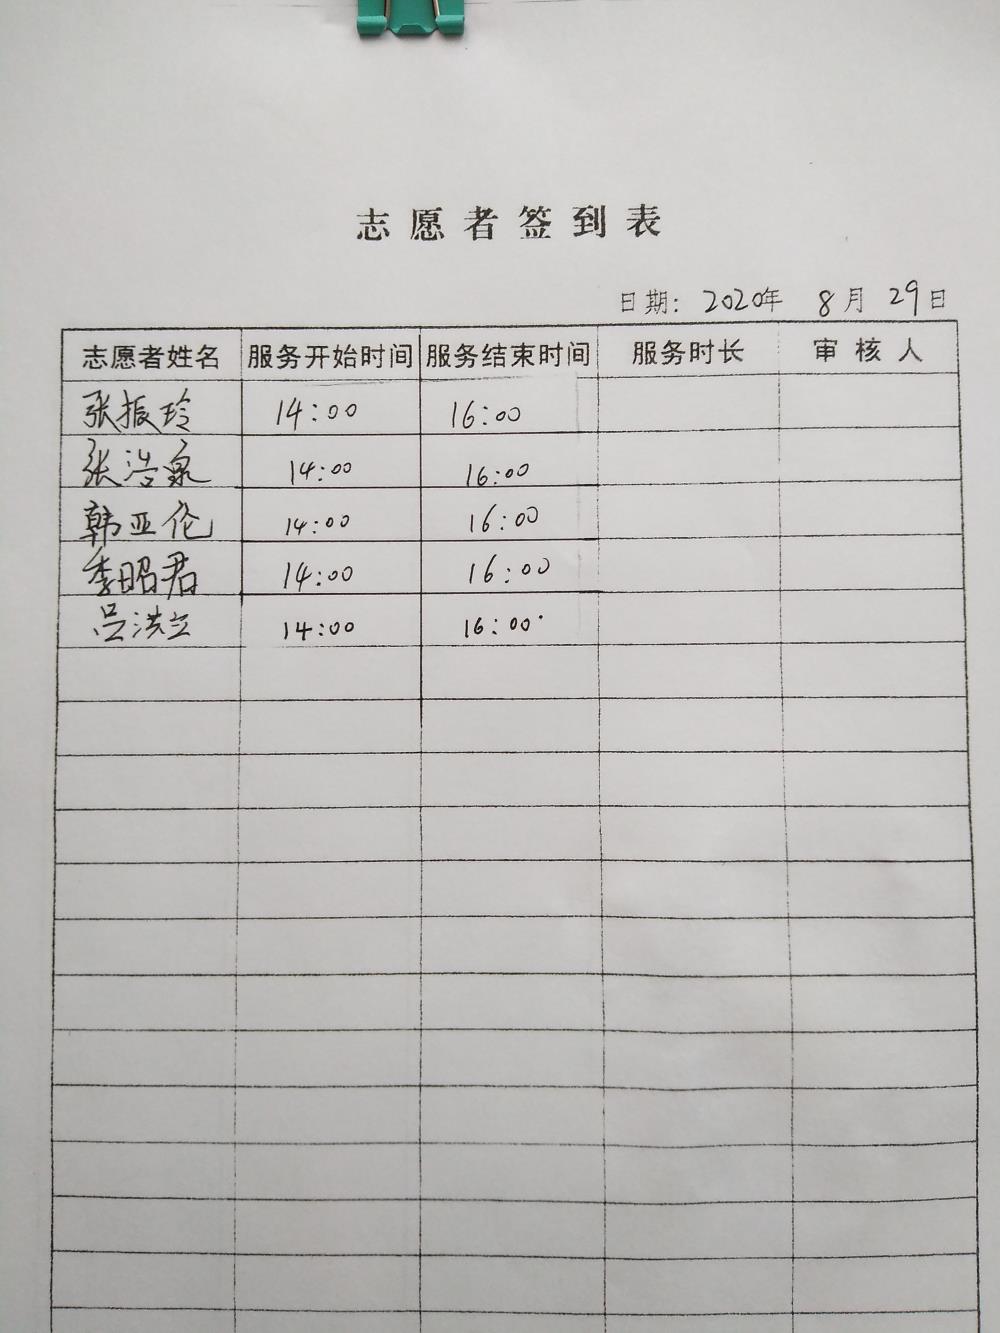 志愿者签到表
日期: 2020年 8月 29日
志愿者姓名 服务开始时间 服务结束时间 服务时长 审核人
张振玲 14:00 16:00
张浩泉 14:00 16:00
韩亚伦 14:00 16:00
季昭君 14:00 16:00
吕洪立 14:00 16:00